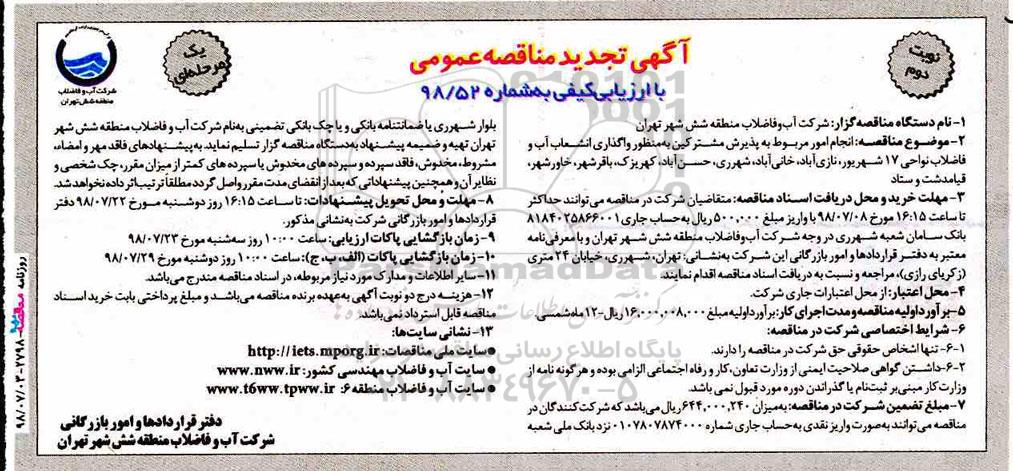 آگهی تجدید مناقصه عمومی
با ارزیابی کیفی به شماره ۹۸/۵۲
نوبت
دوم
یک
مرحله‌ای
شرکت آب و فاضلاب
منطقه شش تهران
۱- نام دستگاه مناقصه گزار: شرکت آب و فاضلاب منطقه شش شهر تهران
۲- موضوع مناقصه: انجام امور مربوط به پذیرش مشترکین به منظور واگذاری انشعاب آب و
فاضلاب نواحی ۱۷ شهریور، نازی‌آباد، خانی‌آباد، شهرری، حسن‌آباد، کهریزک، باقرشهر، خاورشهر،
قیامدشت و ستاد
۳- مهلت خرید و محل دریافت اسناد مناقصه: متقاضیان شرکت در مناقصه می‌توانند حداکثر
تا ساعت ۱۶:۱۵ مورخ ۹۸/۰۷/۰۸ با واریز مبلغ ۵۰۰,۰۰۰ ریال به حساب جاری ۸۱۸۴۰۲۵۸۶۶۰۰۱
بانک سامان شعبه شهرری در وجه شرکت آب و فاضلاب منطقه شش شهر تهران و با معرفی‌نامه
معتبر به دفتر قراردادها و امور بازرگانی این شرکت به نشانی: تهران، شهرری، خیابان ۲۴ متری
(زکریای رازی)، مراجعه و نسبت به دریافت اسناد مناقصه اقدام نمایند.
۴- محل اعتبار: از محل اعتبارات جاری شرکت.
۵- برآورد اولیه مناقصه و مدت اجرای کار: برآورد اولیه مبلغ ۱۶,۰۰۰,۰۰۸,۰۰۰ ریال-۱۲ ماه شمسی.
۶- شرایط اختصاصی شرکت در مناقصه:
۶-۱- تنها اشخاص حقوقی حق شرکت در مناقصه را دارند.
۶-۲- داشتن گواهی صلاحیت ایمنی از وزارت تعاون، کار و رفاه اجتماعی الزامی بوده و هرگونه نامه از
وزارت کار مبنی بر ثبت‌نام یا گذراندن دوره مورد قبول نمی باشد.
۷- مبلغ تضمین شرکت در مناقصه: به میزان ۶۴۴,۰۰۰,۲۴۰ ریال می‌باشد که شرکت کنندگان در
مناقصه می‌توانند به صورت واریز نقدی به حساب جاری شماره ۰۱۰۷۸۰۷۸۷۴۰۰۰ نزد بانک ملی شعبه
بلوار شهرری یا ضمانتنامه بانکی و یا چک بانکی تضمینی به نام شرکت آب و فاضلاب منطقه شش شهر
تهران تهیه و ضمیمه پیشنهاد به دستگاه مناقصه گزار تسلیم نماید. به پیشنهادهای فاقد مهر و امضاء،
مشروط، مخدوش، فاقد سپرده و سپرده های مخدوش یا سپرده های کمتر از میزان مقرر، چک شخصی و
نظایر آن و همچنین پیشنهاداتی که بعد از انقضای مدت مقرر واصل گردد مطلقا ترتیب اثر داده نخواهد شد.
۸- مهلت و محل تحویل پیشنهادات: تا ساعت ۱۶:۱۵ روز دوشنبه مورخ ۹۸/۰۷/۲۲ دفتر
قراردادها و امور بازرگانی شرکت به نشانی مذکور.
۹- زمان بازگشایی پاکات ارزیابی: ساعت ۱۰:۰۰ روز سه‌شنبه مورخ ۹۸/۰۷/۲۳
۱۰- زمان بازگشایی پاکات (الف، ب، ج): ساعت ۱۰:۰۰ روز دوشنبه مورخ ۹۸/۰۷/۲۹
۱۱- سایر اطلاعات و مدارک مورد نیاز مربوطه، در اسناد مناقصه مندرج می‌باشد.
۱۲- هزینه درج دو نوبت آگهی به عهده برنده مناقصه می‌باشد و مبلغ پرداختی بابت خرید اسناد
مناقصه قابل استرداد نمی‌باشد.
۱۳- نشانی سایت‌ها:
● سایت ملی مناقصات: http://iets.mporg.ir
● سایت آب و فاضلاب مهندسی کشور: www.nww.ir
● سایت آب و فاضلاب منطقه ۶: www.t6ww.tpww.ir
دفتر قراردادها و امور بازرگانی
شرکت آب و فاضلاب منطقه شش شهر تهران
پایگاه اطلاع رسانی
۰۲۱-۸۸۳۴۹۶۷۰-۵
روزنامه
۹۸/۰۷/۰۳-۲۷۹۸